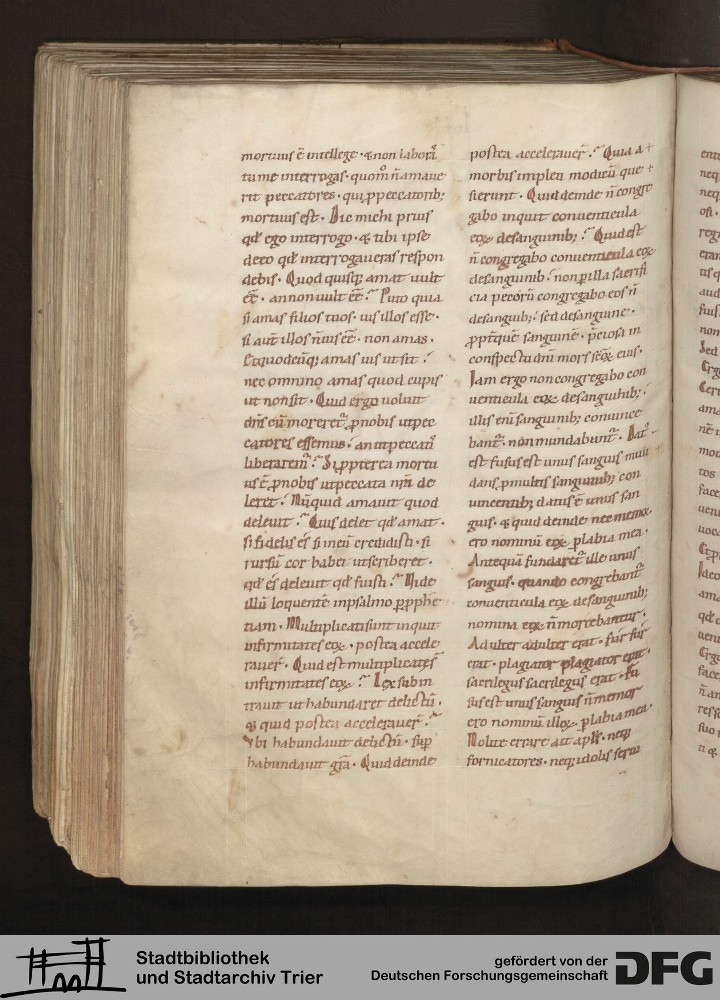 mortuus ē intellege · & non laborā
tu me interrogas · quom̄ n̄ amaue
rit peccatores · qui p̱ peccatorib;
mortuus est · Dic michi prius
qd̄ ego interrogo · & tibi ipse
deeo qd̄ interrogaueras respon
debis · Quod quisq; amat uult
ēē · an non uult ēē · Puto quia
si amas filios tuos · uis illos esse ·
si aut̄ illos n̄ uis ēē · non amas ·
Et quodcūq; amas uis ut sit ·
nec omnino amas quod cupis
ut non sit · Quid ergo uoluit
dn̄s cū moreret̄ p̱ nobis ut pec
catores essemus · an ut peccati
liberarem̄ · Si p̱pterea mortu
us ē p̱ nobis ut peccata nr̄i de
leret · Nūquid amauit quod
deleuit · Quis delet qd̄ amat ·
si fidelis es si in eū credidisti · si
rursū cor habet ut scriberet ·
qd̄ es deleuit qd̄ fuisti · Uide
illū loquentē in psalmo p̱ p̱phe
tiam · Multiplicati sunt inquit
infirmitates eoꝝ · postea accele
rauer̄ · Quid est multiplicates
infirmitates eoꝝ · Lex sub in
trauit ut habundaret delictū ·
& quid postea accelerauer̄ ·
Ubi habundauit delictū · sup̱
habundauit grā · Quid deinde
postea accelerauer̄ · Quia a
morbis impleti modicū que
sierunt · Quid deinde n̄ congre
gabo inquit conuenticula
eoꝝ de sanguinib; · Quid est
n̄ congregabo conuenticula eoꝝ
de sanguinib; · non p̱ illa sacrifi
cia pecorū congregabo eos n̄
de sanguib; · sed de sanguine ·
p̱pt̄ quē sanguinē · p̄ciosa in
conspectu dnī mors scōꝝ eius ·
Iam ergo non congregabo con
uenticula eoꝝ de sanguinib; ·
illis enī sanguinib; conuince
bant̄ · non mundabunt̄ · Dat̄
est fusus est unus sanguis mun
dans p̱ multis sanguinib; con
uincentib; datus ē unus san
guis · & quid deinde nec memor
ero nominū eoꝝ p̱ labia mea ·
Antequā fundaret̄ ille unus
sanguis · quando congrebant̄
conuenticula eoꝝ de sanguinib;
nomina eoꝝ n̄ morebantur ·
Adulter adulter erat · fur fur
erat · plagiator plagiator erat ·
sacrilegus sacrilegus erat · Fu
sus est unus sanguis n̄ memor
ero nominū illoꝝ · p̱ labia mea ·
Nolite errare ait apl̄s · neq;
fornicatores · neq; idolis serui
Stadtbibliothek
und Stadtarchiv Trier
gefördert von der
Deutschen Forschungsgemeinschaft
DFG